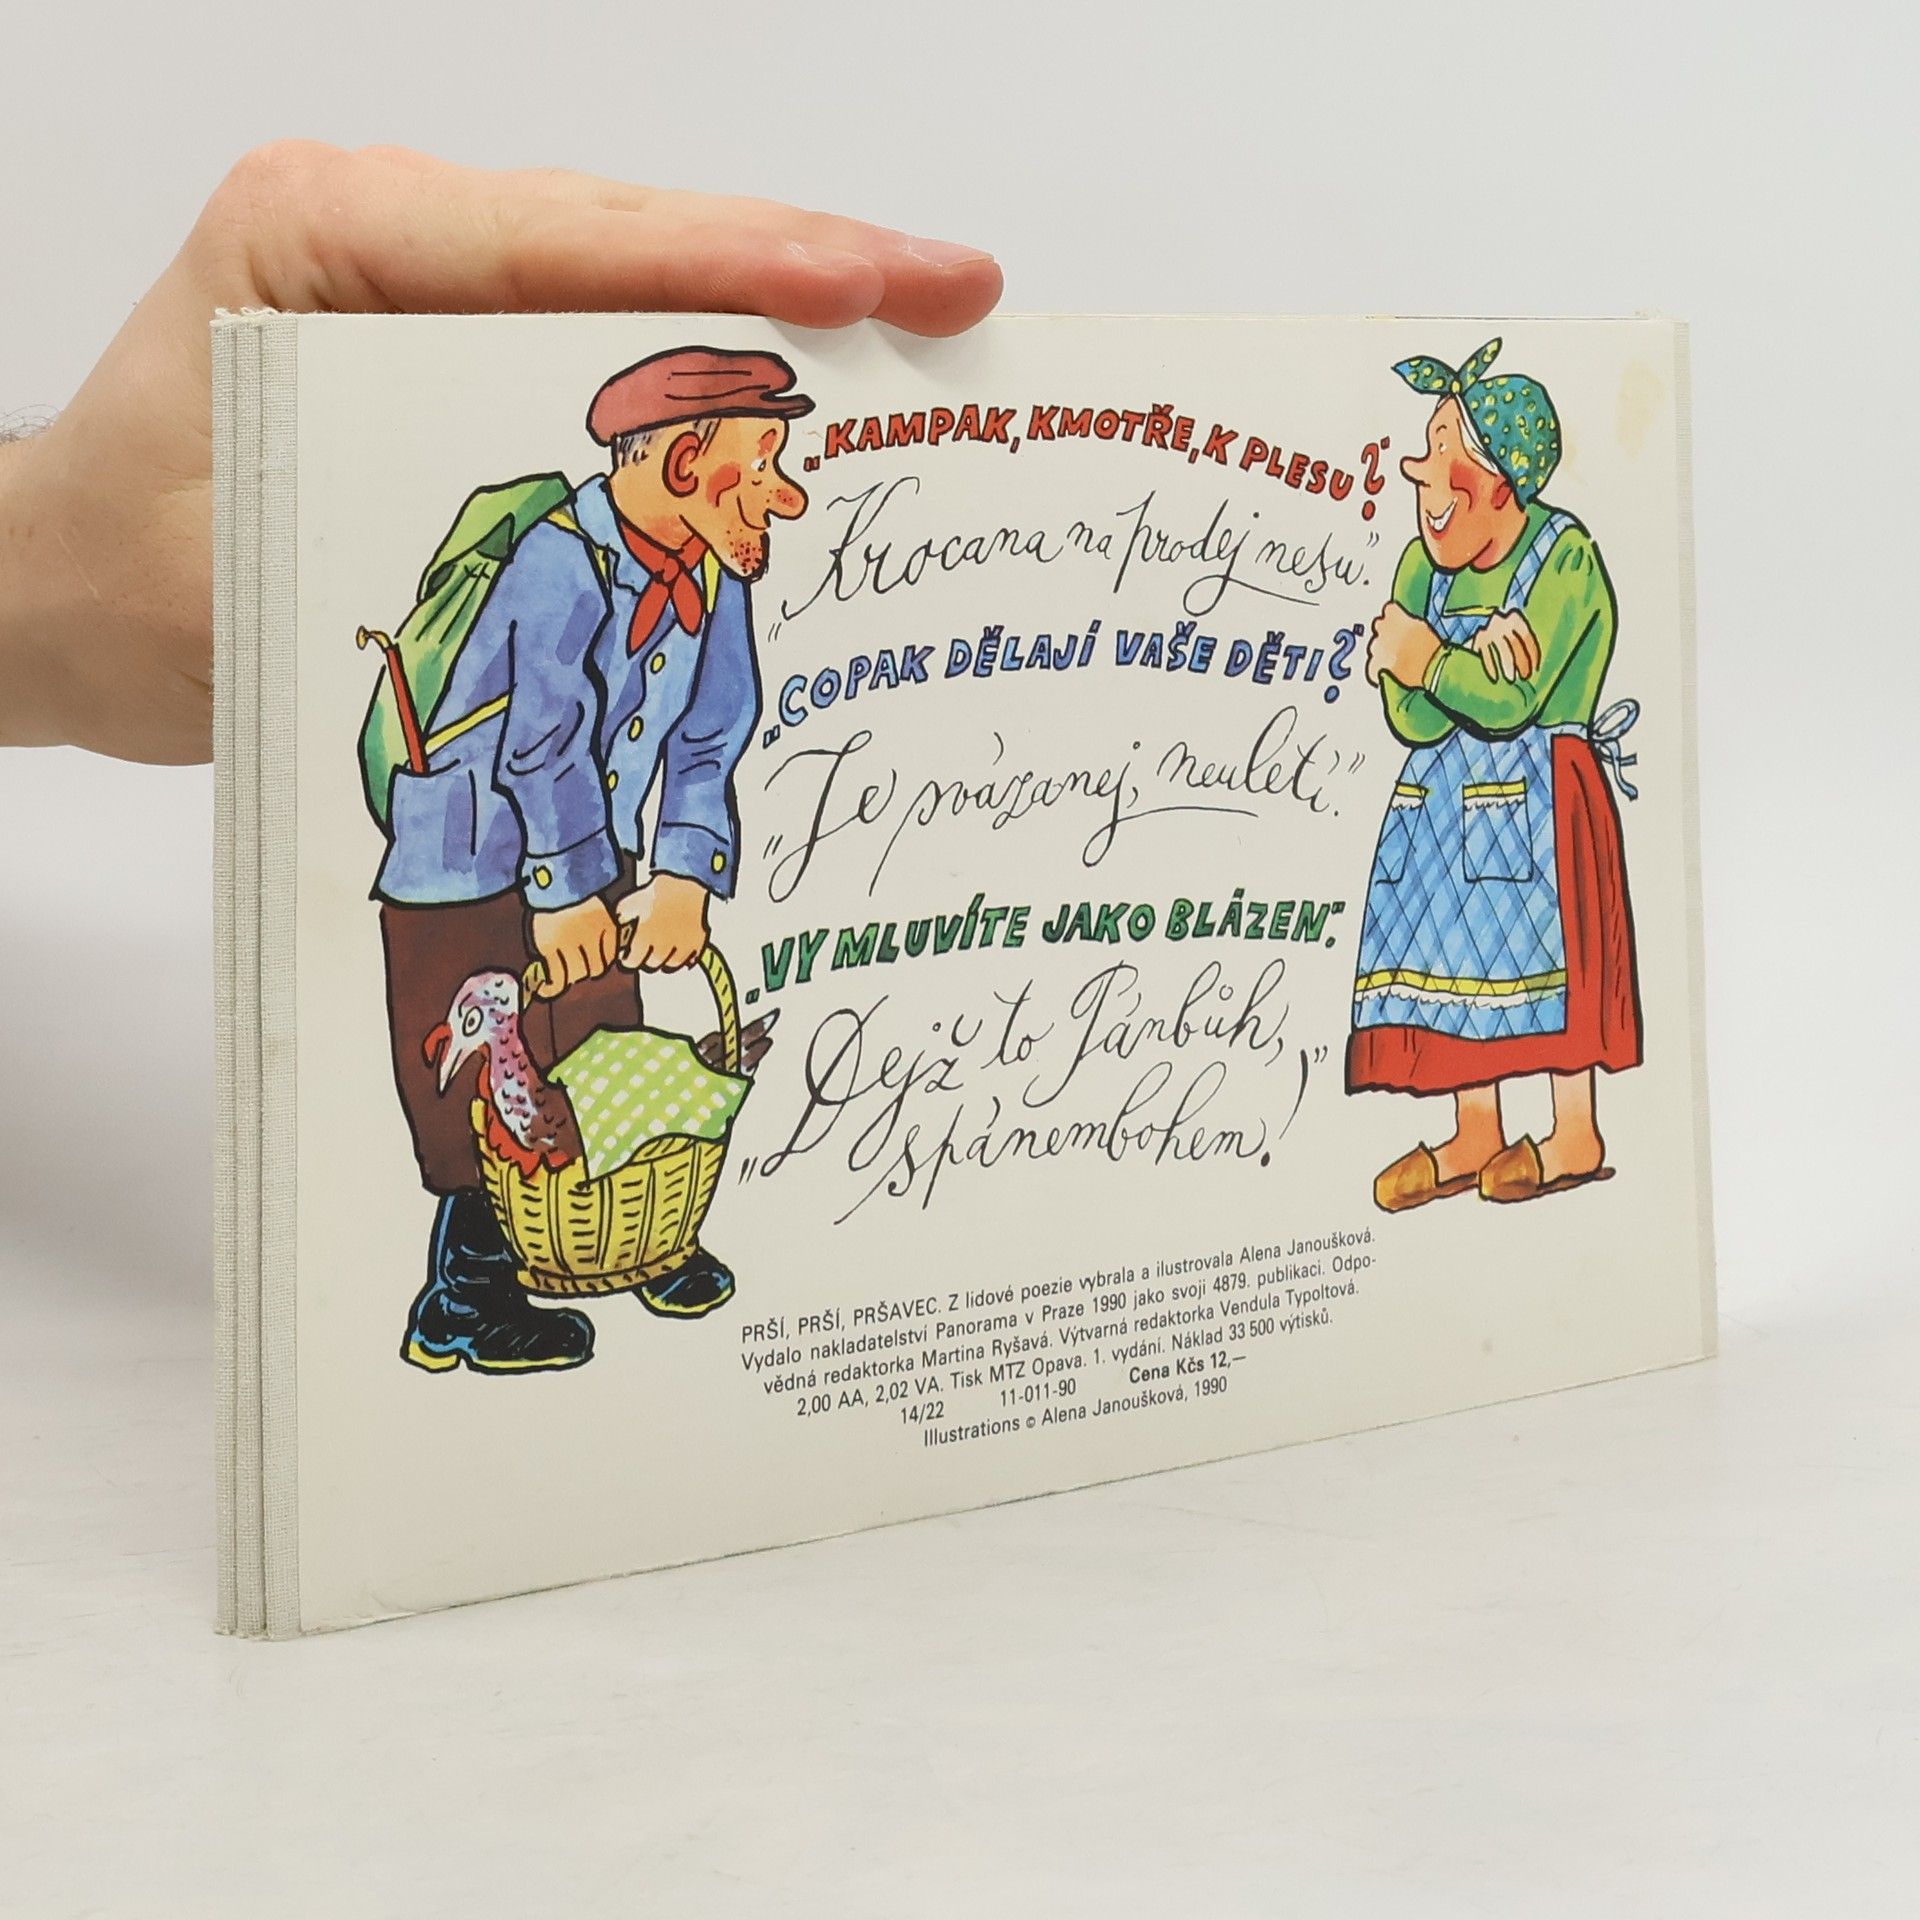 „KAMPAK, KMOTŘE, K PLESU?“
„Krocana na prodej nesu.“
„COPAK DĚLAJÍ VAŠE DĚTI?“
„Je svázanej, neuletí.“
„VY MLUVÍTE JAKO BLÁZEN.“
„Dejž to Pánbůh,
spánembohem!“
PRŠÍ, PRŠÍ, PRŠAVEC. Z lidové poezie vybrala a ilustrovala Alena Janoušková.
Vydalo nakladatelství Panorama v Praze 1990 jako svoji 4879. publikaci. Odpo-
vědná redaktorka Martina Ryšavá. Výtvarná redaktorka Vendula Typoltová.
2,00 AA, 2,02 VA. Tisk MTZ Opava. 1. vydání. Náklad 33 500 výtisků.
14/22 11-011-90 Cena Kčs 12,—
Illustrations © Alena Janoušková, 1990